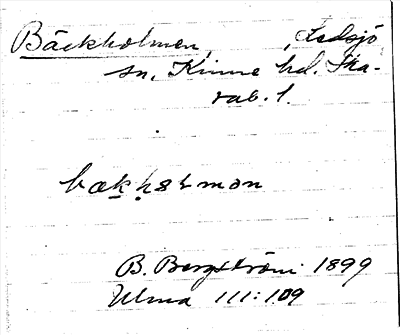 Bäckholmen, , Ledsjö
sn, Kinne hd. Ska-
rab. l.
bækhɷlmən
B. Bergström 1899
Ulma 111:109